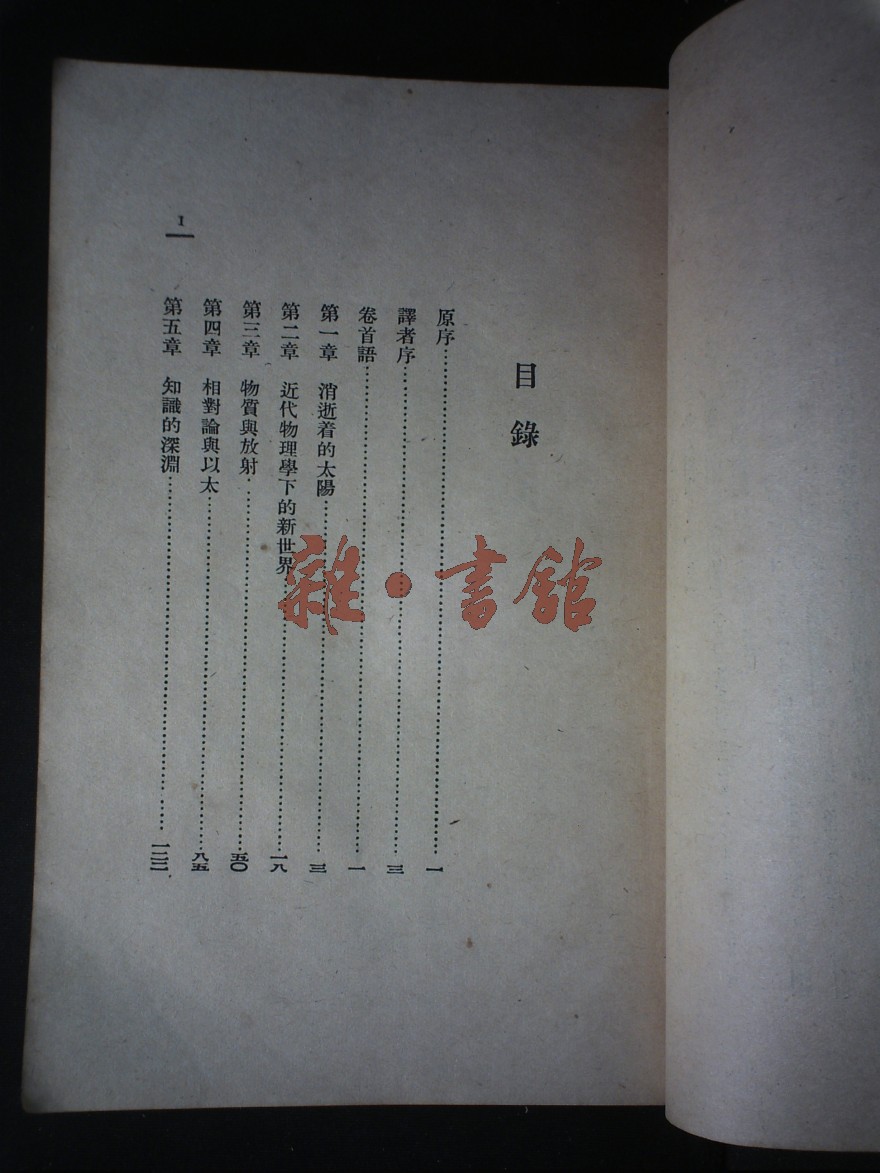 目錄
原序……一
譯者序……三
卷首語……一
第一章 消逝着的太陽……三
第二章 近代物理學下的新世界……一八
第三章 物質與放射……五〇
第四章 相對論與以太……八五
第五章 知識的深淵……
1
雜·書館